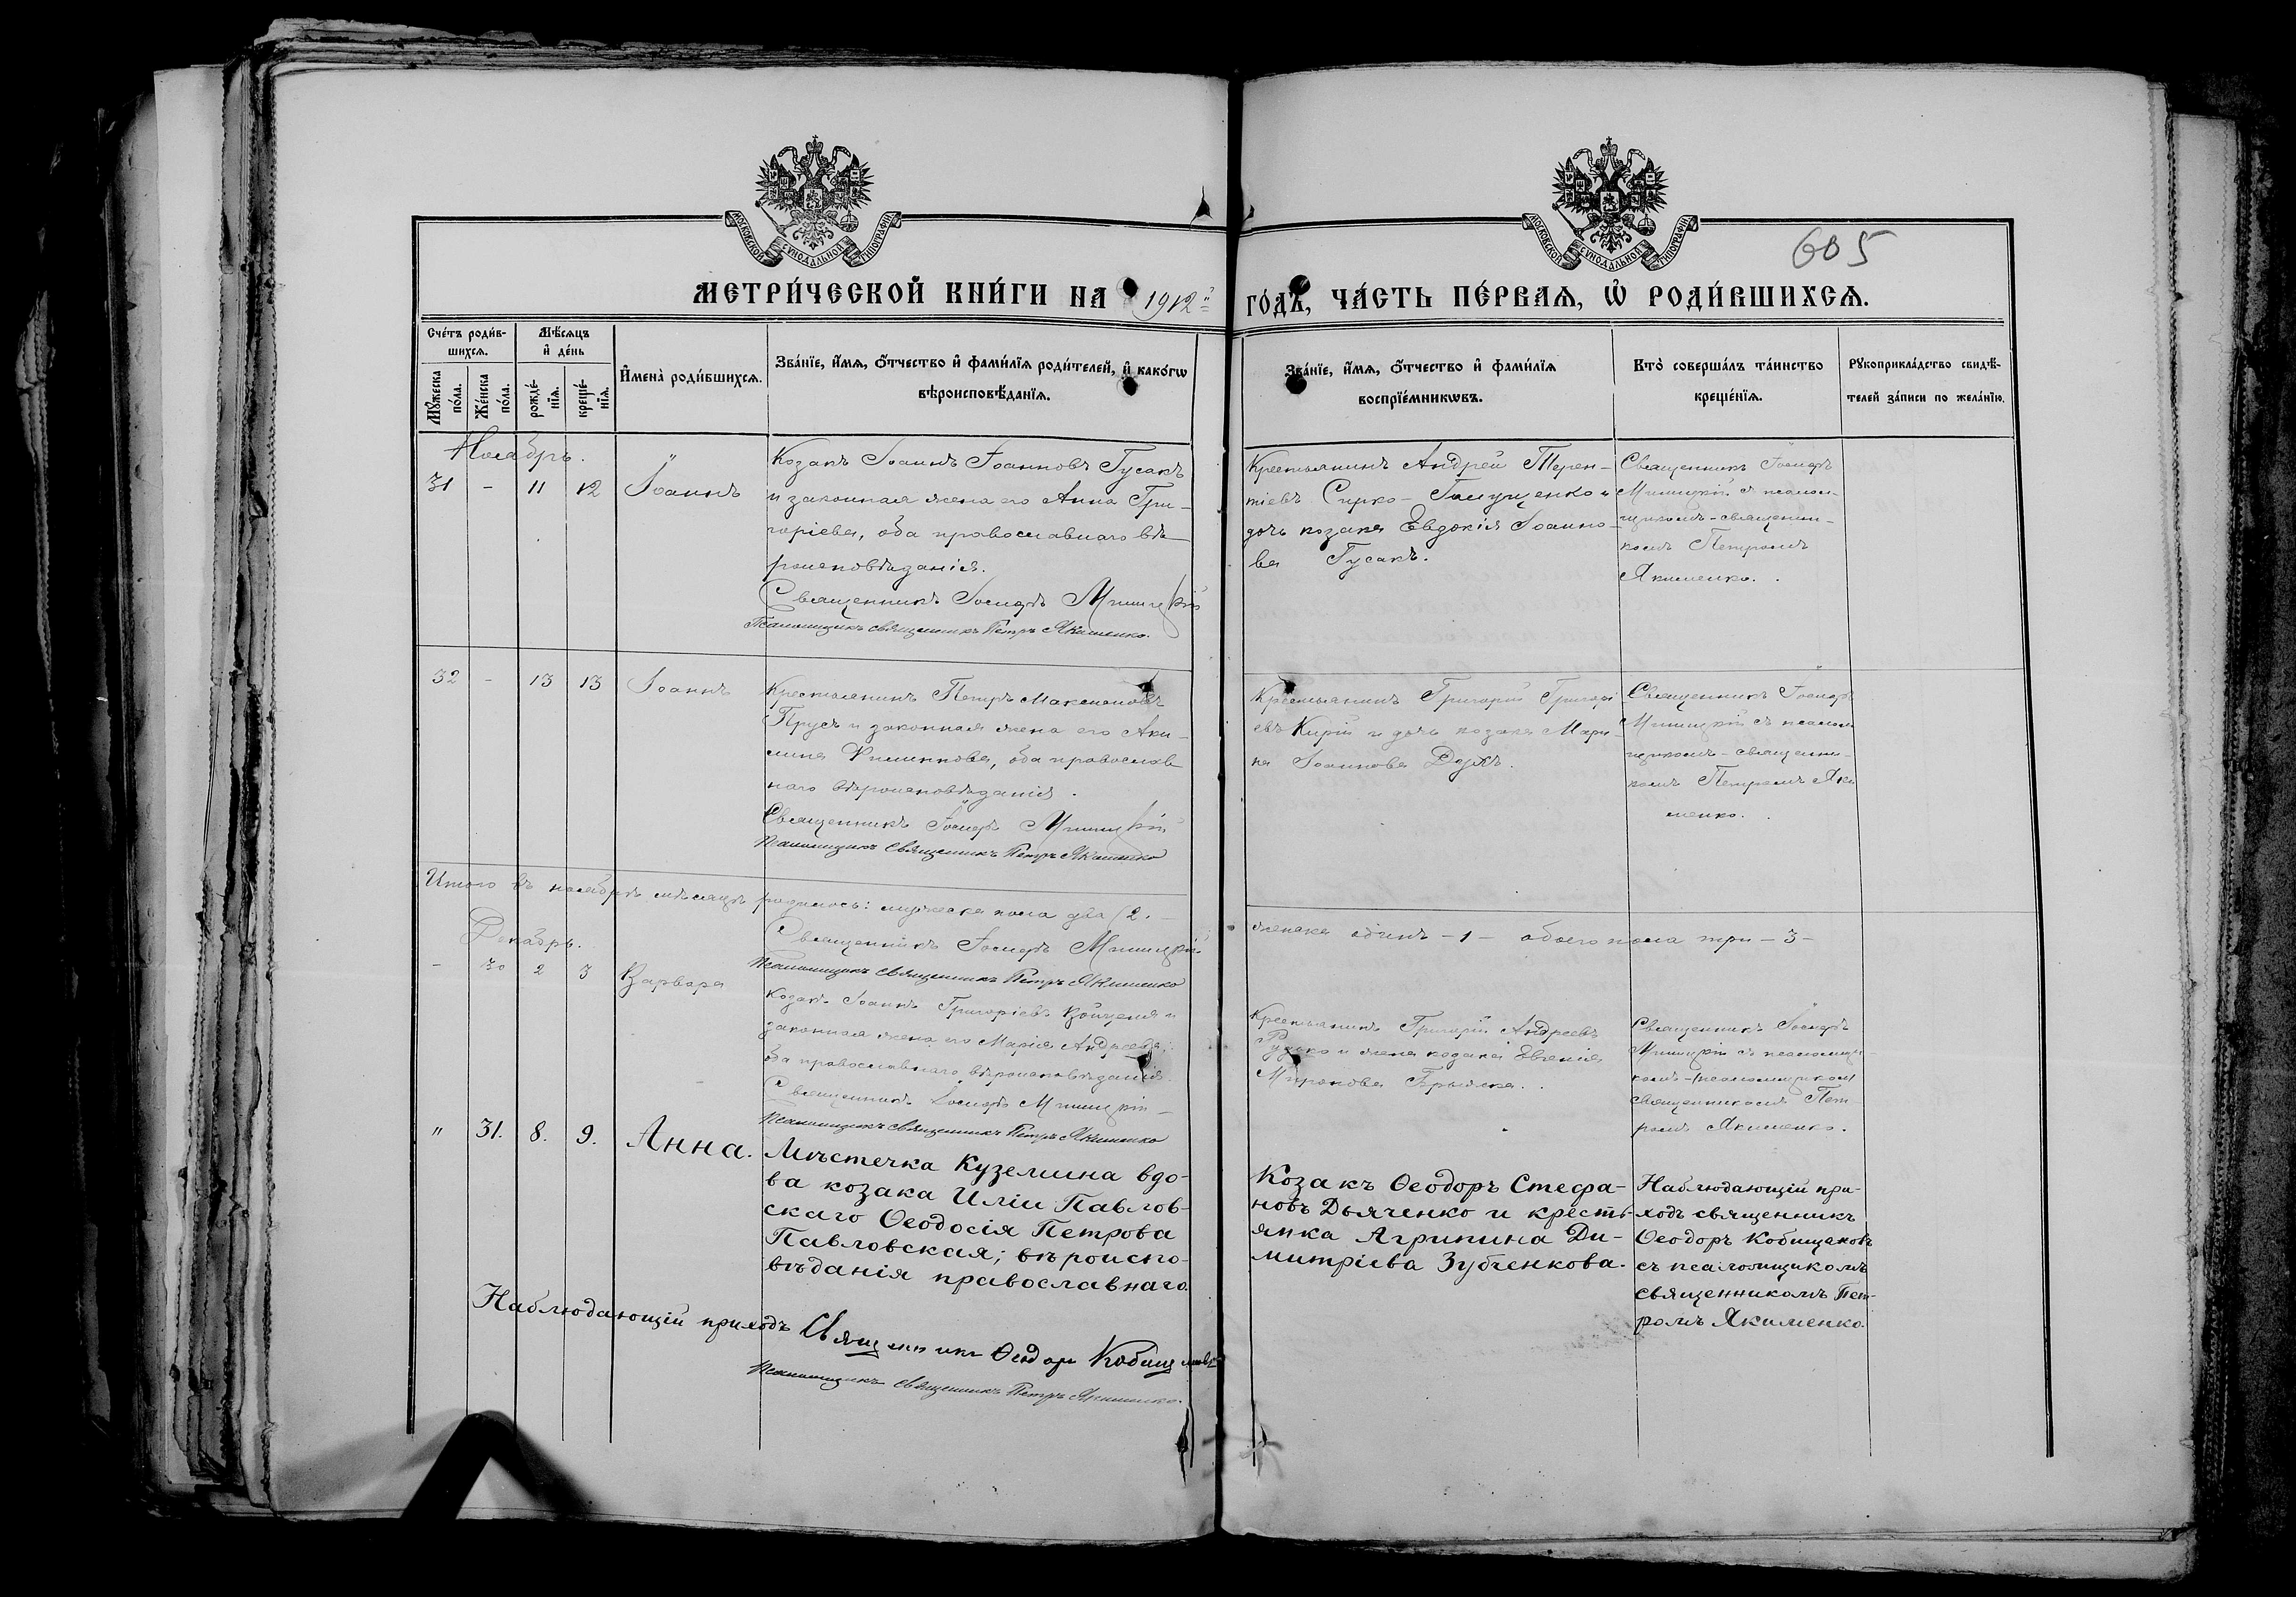 МОСКОВСКОЙ СѴНОДАЛЬНОЙ ТИПОГРАФІИ
МОСКОВСКОЙ СѴНОДАЛЬНОЙ ТИПОГРАФІИ
605
МЕТРИ́ЧЕСКОЙ КНИ́ГИ НА 1912й ГО́ДЪ, ЧА́СТЬ ПЕ́РВАѦ, Ѡ҆ РОДИ́ВШИХСѦ.
Сче́тъ роди́в-
шихсѧ.
Мѣ́сѧцъ
и҆ де́нь
Мꙋ́жеска
по́ла.
Же́нска
по́ла.
рожде́-
нїѧ.
креще́-
нїѧ.
И҆мена̀ роди́вшихсѧ.
Зва́нїе, и҆́мѧ, ѻ҆́тчество и҆ фами́лїѧ роди́телей, и҆ како́гѡ
вѣроисповѣ́данїѧ.
Зва́нїе, и҆́мѧ, ѻ҆́тчество и҆ фами́лїѧ
воспрїе́мникѡвъ.
Кто̀ соверша́лъ та́инство
креще́нїѧ.
Рꙋкоприкла́дство свидѣ́-
телей за́писи по жела́нїю.
Ноябрь.
31 - 11 12 Іоаннъ
Козакъ Іоаннъ Іоанновъ Гусакъ
и законная жена его Анна Гри-
горіева, оба православнаго вѣ-
роисповѣданія.
Священникъ Іосифъ
Псаломщикъ священникъ Петръ Якименко.
Крестьянинъ Андрей Терен-
тіевъ Сирко- и
дочь козака Евдокія Іоанно-
ва Гусакъ.
Священникъ Іосифъ
съ псалом-
щикомъ-священни-
комъ Петромъ
Якименко.
32 - 13 13 Іоаннъ
Крестьянинъ Петръ Максимовъ
Прусъ и законная жена его Аки-
лина Филиппова, оба православ
наго вѣроисповѣданія.
Священникъ Іосифъ
Псаломщикъ Священникъ Петръ Якименко
Крестьянинъ Григорій Григорі
евъ Кирій и дочь козака Мари-
на Іоаннова
Священникъ Іосифъ
съ псалом
щикомъ-священни-
комъ Петромъ Яки
менко.
Итого въ ноябрѣ мѣсяцѣ родилось: мужеска пола два (2.-
женска одинъ -1- обоего пола три -3-
Священникъ Іосифъ
Псаломщикъ священникъ Петръ Якименко
Декабрь.
- 30 2 3 Варвара
Козакъ Іоаннъ Григоріевъ и
законная жена его Марія Андреева,
оба православнаго вѣроисповѣданія.
Священникъ Іосифъ
Псаломщикъ священникъ Петръ Якименко
Крестьянинъ Григорій Андреевъ
и жена козака Евгенія
Миронова
Священникъ Іосифъ
съ псаломщи-
комъ-псаломщикомъ
священникомъ Пет-
ромъ Якименко.
" 31. 8. 9. Анна.
Мѣстечка Куземина вдо-
ва козака Иліи Павлов-
скаго Ѳеодосія Петрова
Павловская; вѣроиспо-
вѣданія православнаго.
Козакъ Ѳеодоръ Стефа-
новъ Дьяченко и кресть-
янка Агрипина Ди-
митріева Зубченкова.
Наблюдающій при-
ходъ священникъ
Ѳеодоръ Кобищановъ
съ псаломщикомъ
священникомъ Пет-
ромъ Якименко.
Наблюдающій приходъ Священникъ Ѳеодоръ Кобищановъ
Псаломщикъ священникъ Петръ Якименко.